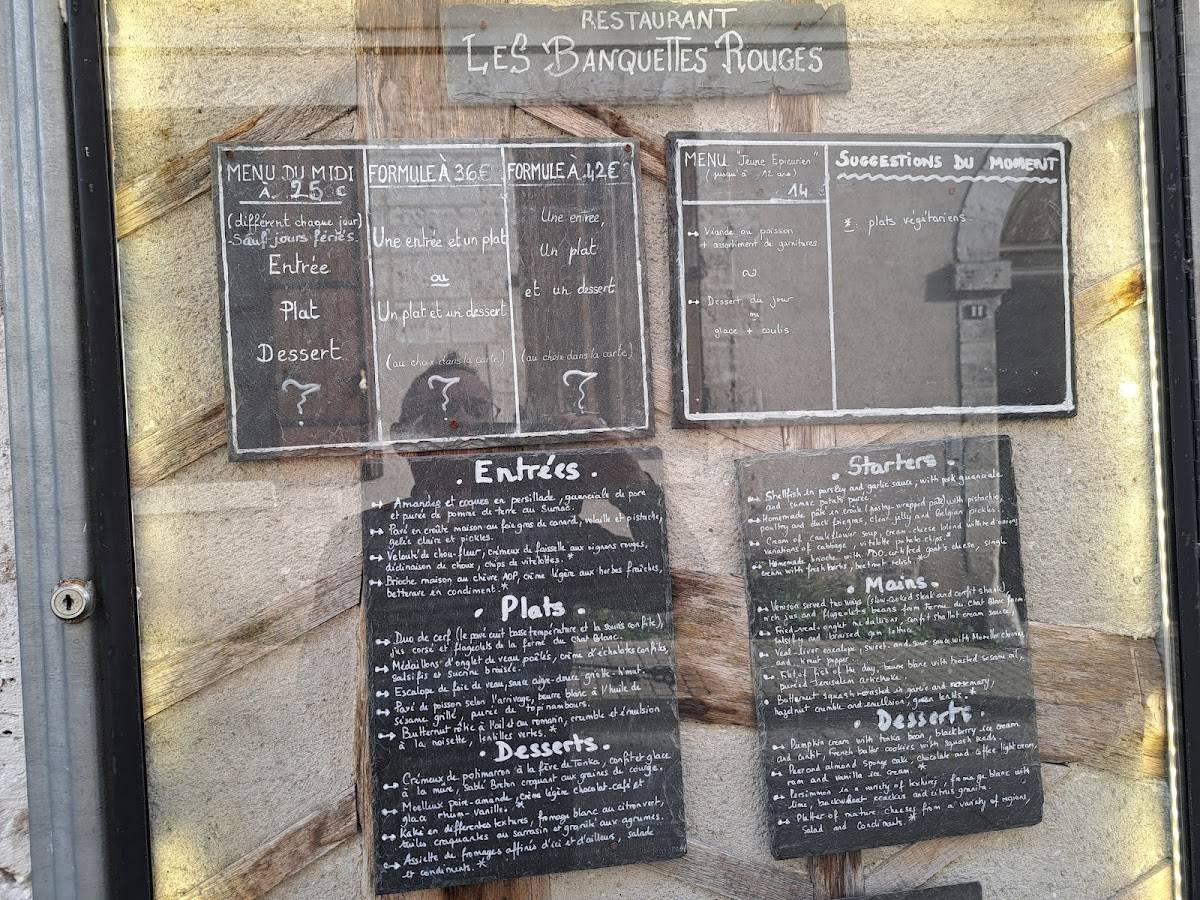 RESTAURANT
LES BANQUETTES ROUGES
MENU DU MIDI
À 25 €
(différent chaque jour)
-Sauf jours fériés.
Entrée
Plat
Dessert
?
FORMULE À 36€
Une entrée et un plat
ou
Un plat et un dessert
(au choix dans la carte)
?
FORMULE À 42€
Une entrée,
Un plat
et un dessert
(au choix dans la carte)
?
MENU "Jeune Epicurien"
(jusqu'à 12 ans)
14
Viande ou poisson
+ assortiment de garnitures
Dessert du jour
ou
glace + coulis
SUGGESTIONS DU MOMENT
* : plats végétariens.
11
. Entrées .
Amandes et coques en persillade, guanciale de porc
et purée de pomme de terre au Sumac.
Pavé en croûte maison au foie gras de canard, volaille et pistache,
gelée claire et pickles.
Velouté de chou-fleur, crémeux de faisselle aux oignons rouges,
déclinaison de choux, chips de vitelottes. *
Brioche maison au chèvre AOP, crème légère aux herbes fraîches,
betterave en condiment. *
. Plats .
Duo de cerf (le pavé cuit basse température et la souris confite),
jus corsé et flageolets de la ferme du Chat Blanc.
Médaillons d'onglet de veau poêlés, crème d'échalotes confites,
salsifis et sucrine braisée.
Escalope de foie de veau, sauce aigre-douce griotte-
Pavé de poisson selon l'arrivage, beurre blanc à l'huile de
sésame grillé, purée de topinambours.
Butternut rôtie à l'ail et au romarin, crumble et émulsion
à la noisette, lentilles vertes. *
. Desserts .
Crémeux de potimarron à la fève de Tonka, confit et glace
à la mûre, Sablé Breton croquant aux graines de courge.
Moelleux poire-amande, crème légère chocolat-café et
glace rhum-vanille. *
Kaki en différentes textures, fromage blanc au citron vert,
tuiles craquantes au sarrasin et granité aux agrumes.
Assiette de fromages affinés d'ici et d'ailleurs, salade
et condiments. *
. Starters .
Shellfish in parsley and garlic sauce, with pork guanciale
and sumac potato purée.
Homemade pâté en croûte (pastry-wrapped pâté) with pistachio,
poultry and duck foie gras, clear jelly and Belgian pickles.
Cream of cauliflower soup, cream-cheese blend with red onions,
variations of cabbage, vitelotte potato chips. *
Homemade brioche with PDO-certified goat's cheese, single
cream with fresh herbs, beetroot relish. *
. Mains .
Venison served two ways (slow-cooked steak and confit shank),
rich jus and flageolets beans from Ferme du Chat Blanc farm
Fried veal onglet medallions, confit shallot cream sauce,
salsify and braised gem lettuce.
Veal-liver escalope, sweet-and-sour sauce with Morello cherry
and pepper.
Filet of fish of the day, beurre blanc with toasted sesame oil,
puréed Jerusalem artichoke.
Butternut squash roasted in garlic and rosemary,
hazelnut crumble and emulsion, green lentils. *
. Desserts .
Pumpkin cream with tonka bean, blackberry ice cream
and confit, French butter cookies with squash seeds.
Pear and almond spongy cake, chocolate and coffee light cream,
rum and vanilla ice cream. *
Persimmon in a variety of textures, fromage blanc with
lime, buckwheat crackers and citrus granita.
Platter of mature cheeses from a variety of regions,
Salad and Condiments. *